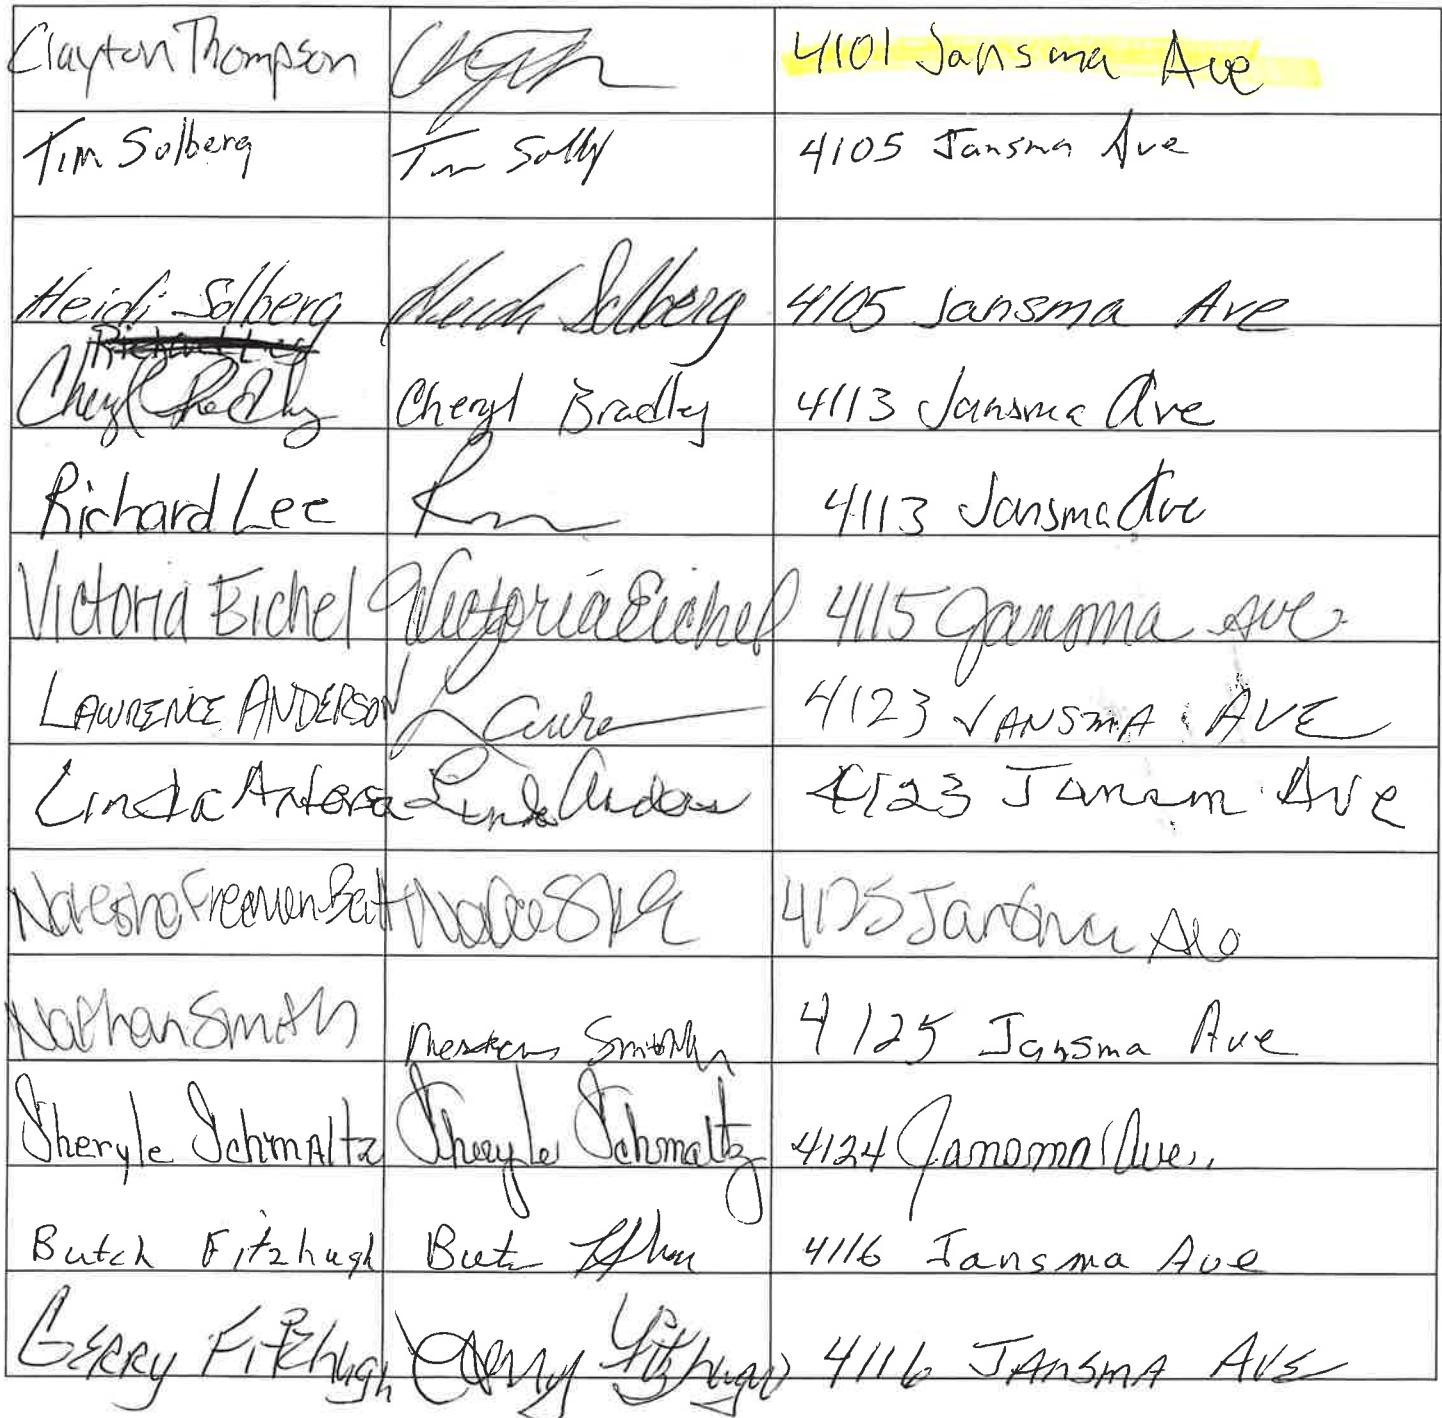 Clayton Thompson 4101 Jansma Ave
Tim Solberg Tim Solby 4105 Jansma Ave
Heidi Solberg Heidi Solberg 4105 Jansma Ave
Richard Lee
Cheryl Bradley Cheryl Bradley 4113 Jansma Ave
Richard Lee 4113 Jansma Ave
Victoria Eichel Victoria Eichel 4115 Jansma Ave
LAWRENCE ANDERSON 4123 JANSMA AVE
Linda 4123 Jansm Ave
4125 Jansma Ave
Nathan Smith Smith 4125 Jansma Ave
Sheryle Schmaltz Sheryle Schmaltz 4124 Jansma Ave.
Butch Fitzhugh Butch 4116 Jansma Ave
GERRY FITZhugh Gerry Fitzhugh 4116 JANSMA AVE